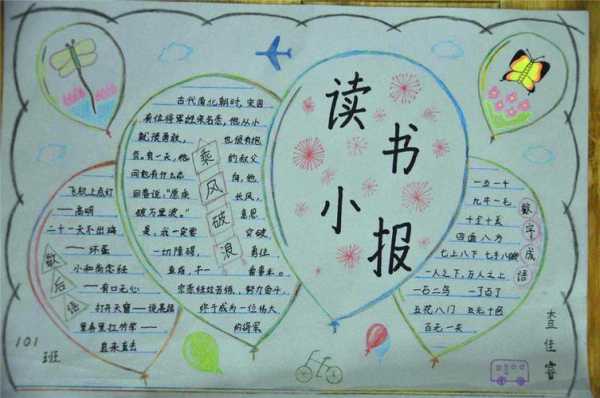 读书小报
古代南北朝时,宋国
有位将军姓宗名悫,他从小
就很勇敢,也很有抱
负。有一天,他的叔父
问他有什么志向,他
回答说:"愿乘长风,
破万里浪。"意思
是:我一定要突破
一切障碍,勇往
直前,干一番事业。
宗悫经过苦练,努力奋斗,
终于成为一位伟大
的将军
乘风破浪
飞机上点灯
——高明
二十一天不出鸡
——坏蛋
小和尚念经
——有口无心
打开天窗——说亮话
里弄里扛竹竿——
直来直去
歇后语
一五一十
九牛一毛
十全十美
四面八方
七上八下 七手八脚
一人之下,万人之上
一石二鸟 一了百了
五花八门 五光十色
百无一失
数字成语
101班
查佳睿